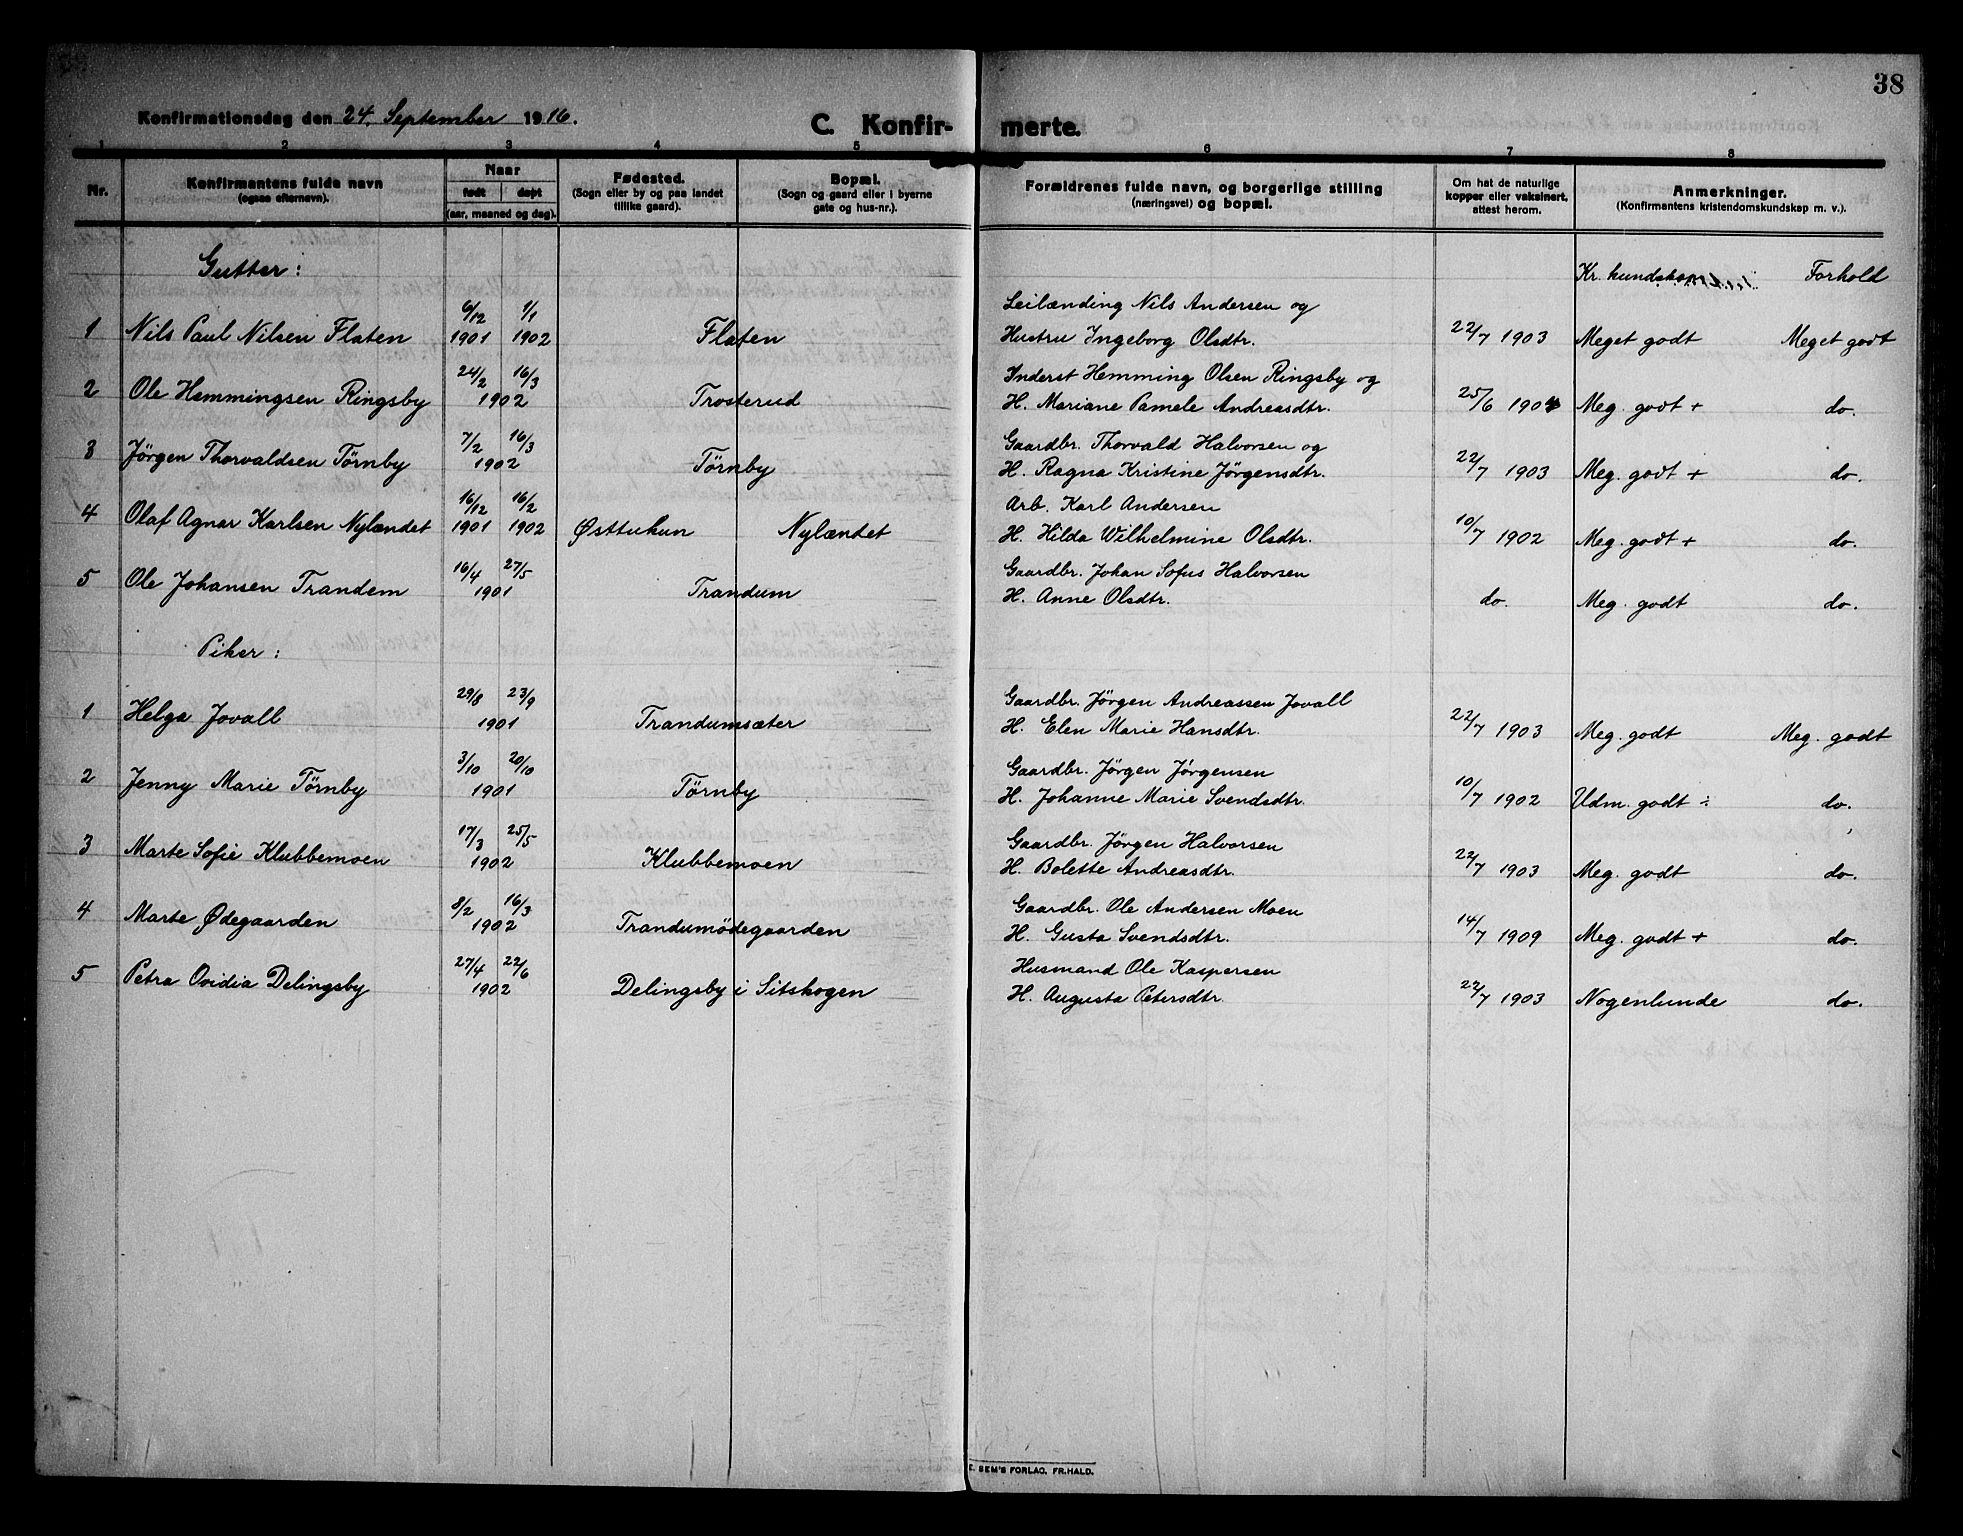 38
Konfirmationsdag den 24. September 1916.
C. Konfir- merte.
1 2 3 4 5 6 7 8
Nr.
Konfirmantens fulde navn
(ogsaa efternavn).
Naar
født døpt
(aar, maaned og dag).
Fødested.
(Sogn eller by og paa landet
tillike gaard).
Bopæl.
(Sogn og gaard eller i byerne
gate og hus-nr.).
Forældrenes fulde navn, og borgerlige stilling
(næringsvei) og bopæl.
Om hat de naturlige
kopper eller vaksinert,
attest herom.
Anmerkninger.
(Konfirmantens kristendomskundskap m. v.).
Gutter:
Kr. kundskap Forhold
6/12 1/1 Leilænding Nils Andersen og
1 Nils Paul Nilsen Flaten 1901 1902 Flaten Hustru Ingeborg Olsdtr. 22/7 1903 Meget godt Meget godt
24/2 16/3 Inderst Hemming Olsen Ringsby og
2 Ole Hemmingsen Ringsby 1902 Trosterud H. Mariane Pamele Andreasdtr. 25/6 1904 Meg. godt + do.
7/2 16/3 Gaardbr. Thorvald Halvorsen og
3 Jörgen Thorvaldsen Törnby 1902 Törnby H. Ragna Kristine Jörgensdtr. 22/7 1903 Meg. godt + do.
16/12 16/2 Arb. Karl Andersen
4 Olaf Agnar Karlsen Nylændet 1901 1902 Østtuhun Nylændet H. Hilda Wilhelmine Olsdtr. 10/7 1902 Meg. godt + do.
16/4 27/5 Gaardbr. Johan Sofus Halvorsen
5 Ole Johansen Trandem 1901 Trandum H. Anne Olsdtr. do. Meg. godt do.
Piker:
29/8 23/9 Gaardbr. Jörgen Andreassen Jovall
1 Helga Jovall 1901 Trandumsæter H. Elen Marie Hansdtr. 22/7 1903 Meg. godt Meg. godt
3/10 20/10 Gaardbr. Jörgen Jörgensen
2 Jenny Marie Törnby 1901 Törnby H. Johanne Marie Svendsdtr. 10/7 1902 Udm. godt ÷ do.
17/3 25/5 Gaardbr. Jörgen Halvorsen
3 Marte Sofie Klubbemoen 1902 Klubbemoen H. Bolette Andreasdtr. 22/7 1903 Meg. godt do.
8/2 16/3 Gaardbr. Ole Andersen Moen
4 Marte Ødegaarden 1902 Trandumödegaarden H. Gusta Svendsdtr. 14/7 1909 Meg. godt + do.
27/4 22/6 Husmand Ole Kaspersen
5 Petra Ovidia Delingsby 1902 Delingsby i Sitskogen H. Augusta Petersdtr. 22/7 1903 Nogenlunde do.
E. SEM'S FORLAG, FR.HALD.